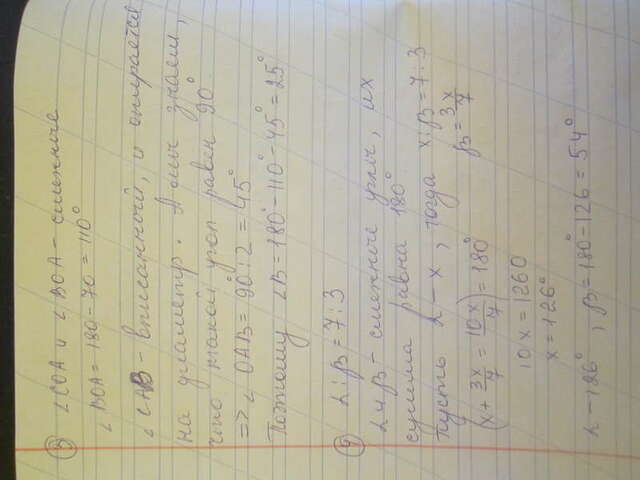 ③ ∠COA и ∠BOA - смежные
∠BOA = 180 - 70 = 110°
∠CAB - вписанный, и опирается
на диаметр. А мы знаем,
что такой угол равен 90°
=> ∠ OAB = 90° : 2 = 45°
Поэтому ∠B = 180° - 110° - 45° = 25°
④ α : β = 7 : 3
α и β - смежные углы, их
сумма равна 180°
Пусть α - x, тогда x : β = 7 : 3
β = 3x/7
(x + 3x/7 = 10x/7) = 180°
10x = 1260
x = 126°
α - 126°, β = 180° - 126 = 54°